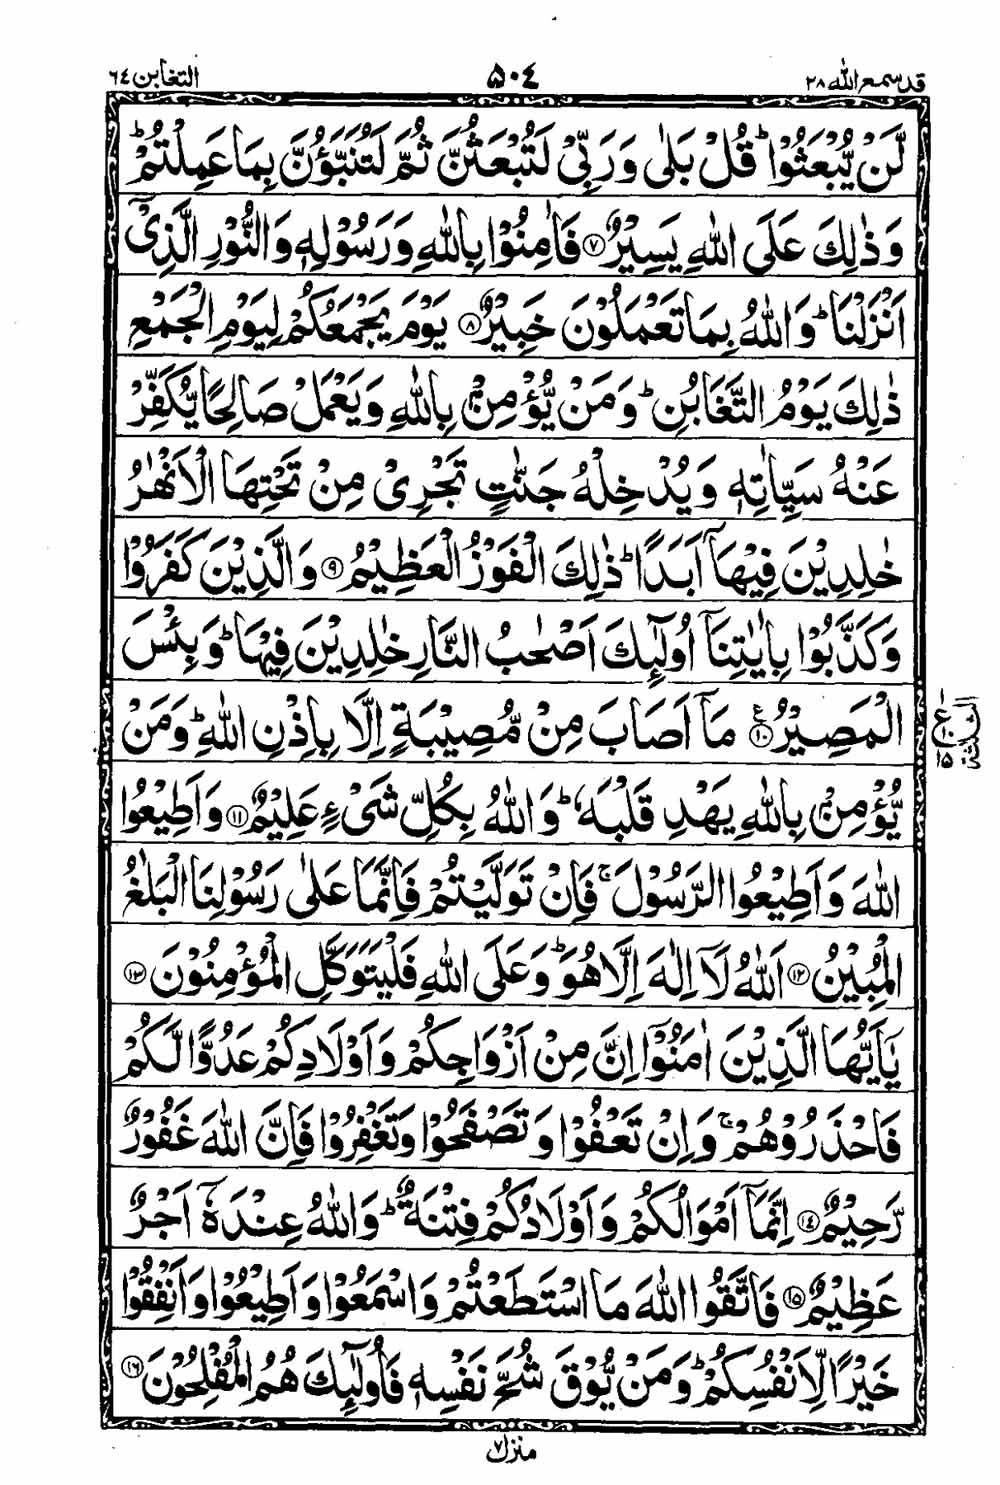 قد سمع الله ۲۸
۵۰٤
التغابن ٦٤
لَّنْ يُّبْعَثُوْا ؕ قُلْ بَلٰى وَ رَبِّىْ لَتُبْعَثُنَّ ثُمَّ لَتُنَبَّؤُنَّ بِمَا عَمِلْتُمْ ؕ
وَ ذٰلِكَ عَلَى اللّٰهِ يَسِيْرٌ ﴿۷﴾ فَاٰمِنُوْا بِاللّٰهِ وَ رَسُوْلِهٖ وَ النُّوْرِ الَّذِىْۤ
اَنْزَلْنَا ؕ وَ اللّٰهُ بِمَا تَعْمَلُوْنَ خَبِيْرٌ ﴿۸﴾ يَوْمَ يَجْمَعُكُمْ لِيَوْمِ الْجَمْعِ
ذٰلِكَ يَوْمُ التَّغَابُنِ ؕ وَ مَنْ يُّؤْمِنْۢ بِاللّٰهِ وَ يَعْمَلْ صَالِحًا يُّكَفِّرْ
عَنْهُ سَيِّاٰتِهٖ وَ يُدْخِلْهُ جَنّٰتٍ تَجْرِىْ مِنْ تَحْتِهَا الْاَنْهٰرُ
خٰلِدِيْنَ فِيْهَاۤ اَبَدًا ؕ ذٰلِكَ الْفَوْزُ الْعَظِيْمُ ﴿۹﴾ وَ الَّذِيْنَ كَفَرُوْا
وَ كَذَّبُوْا بِاٰيٰتِنَاۤ اُولٰٓئِكَ اَصْحٰبُ النَّارِ خٰلِدِيْنَ فِيْهَا ؕ وَ بِئْسَ
الْمَصِيْرُ ﴿۱۰﴾ ع مَاۤ اَصَابَ مِنْ مُّصِيْبَةٍ اِلَّا بِاِذْنِ اللّٰهِ ؕ وَ مَنْ
يُّؤْمِنْۢ بِاللّٰهِ يَهْدِ قَلْبَهٗ ؕ وَ اللّٰهُ بِكُلِّ شَىْءٍ عَلِيْمٌ ﴿۱۱﴾ وَ اَطِيْعُوا
اللّٰهَ وَ اَطِيْعُوا الرَّسُوْلَ ۚ فَاِنْ تَوَلَّيْتُمْ فَاِنَّمَا عَلٰى رَسُوْلِنَا الْبَلٰغُ
الْمُبِيْنُ ﴿۱۲﴾ اَللّٰهُ لَاۤ اِلٰهَ اِلَّا هُوَ ؕ وَ عَلَى اللّٰهِ فَلْيَتَوَكَّلِ الْمُؤْمِنُوْنَ ﴿۱۳﴾
يٰۤاَيُّهَا الَّذِيْنَ اٰمَنُوْۤا اِنَّ مِنْ اَزْوَاجِكُمْ وَ اَوْلَادِكُمْ عَدُوًّا لَّكُمْ
فَاحْذَرُوْهُمْ ۚ وَ اِنْ تَعْفُوْا وَ تَصْفَحُوْا وَ تَغْفِرُوْا فَاِنَّ اللّٰهَ غَفُوْرٌ
رَّحِيْمٌ ﴿۱٤﴾ اِنَّمَاۤ اَمْوَالُكُمْ وَ اَوْلَادُكُمْ فِتْنَةٌ ؕ وَ اللّٰهُ عِنْدَهٗۤ اَجْرٌ
عَظِيْمٌ ﴿۱۵﴾ فَاتَّقُوا اللّٰهَ مَا اسْتَطَعْتُمْ وَ اسْمَعُوْا وَ اَطِيْعُوْا وَ اَنْفِقُوْا
خَيْرًا لِّاَنْفُسِكُمْ ؕ وَ مَنْ يُّوْقَ شُحَّ نَفْسِهٖ فَاُولٰٓئِكَ هُمُ الْمُفْلِحُوْنَ ﴿۱٦﴾
الثلاثة
ع
۱۰
۱۵
منزل ۷